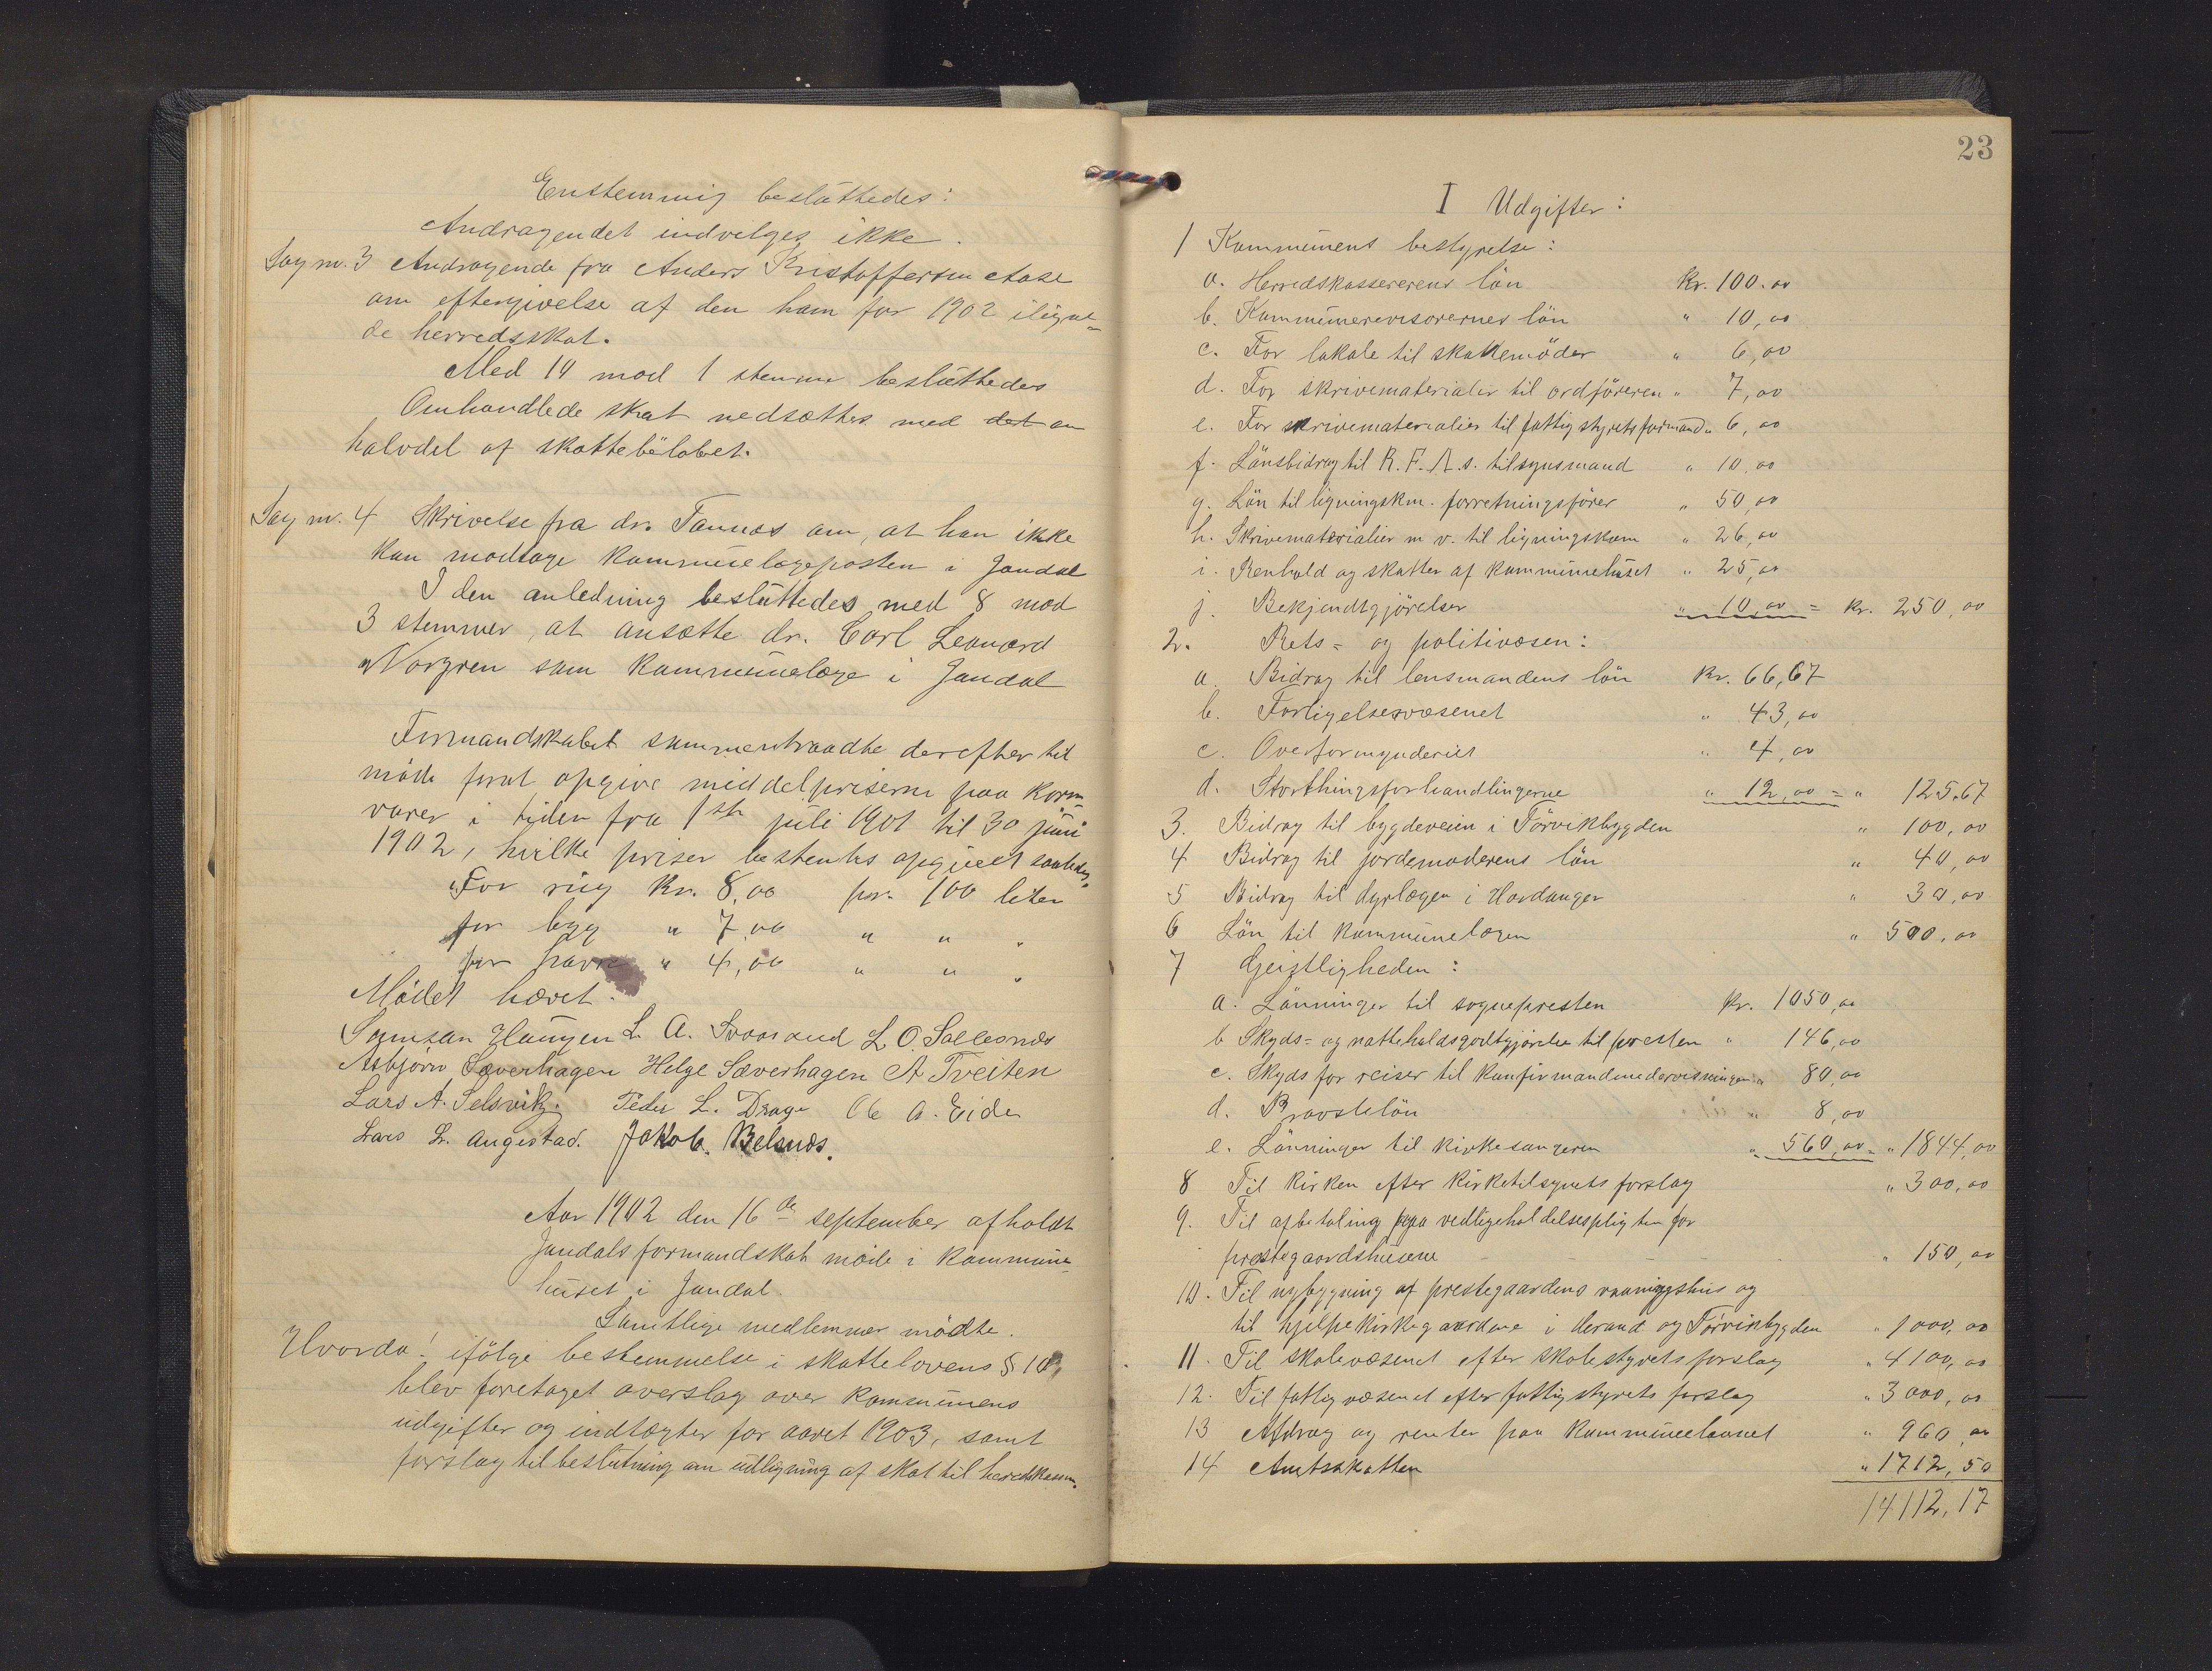 Enstemmig beslüttedes:
Andragendet indvilges ikke.
Sag nr. 3 Andragende fra Anders Kristoffersen Aase
om eftergivelse af den ham for 1902 iligne=
de herredsskat.
Med 14 mod 1 stemme beslüttedes
Omhandlede skat nedsættes med det en
halvdel af skattebeløbet.
Sag nr. 4 Skrivelse fra dr. Tannæs om, at han ikke
kan modtage kommunelægeposten i Jondal
I den anledning beslüttedes med 8 mod
3 stemmer, at ansætte dr. Carl Leonard
Norgren som kommünelæge i Jondal
Formandskabet sammentraadte derefter til
möde forat opgive middelpriserne paa korn=
varer i tiden fra 1ste jüli 1901 til 30 jüni
1902, hvilke priser bestemtes opgivet saaledes:
For rüg Kr. 8,00 pr. 100 liter
for byg " 7,00 " " "
for havre " 4,00 " " "
Mödet hævet.
Samson Haugen L. A. Svaasand L. O. Sollesnæs
Asbjørn Sæverhagen Helge Sæverhagen A Tveiten
Lars A. Selsvik. Peder L. Drage Ole A. Eide
Lars L. Augestad. Jakob. Belsnæs.
Aar 1902 den 16de september afholdt
Jondals formandskab möde i kommune=
hüset i Jondal.
Samtlige medlemmer mödte.
Hvorda! ifölge bestemmelse i skattelovens § 10,
blev foretaget overslag over kommunens
udgifter og indtægter for aaret 1903, samt
forslag til beslutning om üdligning af skat til herredskassen.
23
I Udgifter:
1 Kommünens bestyrelse:
a. Herredskassererens lön Kr. 100.00
b. Kommünerevisorernes lön " 10,00
c. For lokale til skattemöder " 6,00
d. For skrivematerialier til ordföreren " 7,00
e. For skrivematerialier til fattigstyrets formand " 6,00
f. Lönsbidrag til R. F. A. s. tilsynsmand " 10,00
g. Lön til ligningskm. forretningsförer " 50,00
h. Skrivematerialier m v. til ligningskom " 26,00
i. Renhold og skatter af kommünehüset " 25,00
j. Bekjendtgjörelser " 10,00 = Kr. 250,00
2. Rets= og politivæsen:
a. Bidrag til lensmandens lön Kr. 66,67
b. Forligelsesvæsenet " 43,00
c. Overformynderiet " 4,00
d. Storthingsforhandlingerne " 12,00 = " 125,67
3. Bidrag til bygdeveien i Törvikbygden " 100,00
4 Bidrag til jordemoderens lön " 40,00
5 Bidrag til dyrlægen i Hardanger " 30,00
6 Lön til kommünelægen " 500,00
7 Geistligheden:
a. Lönninger til sognepresten Kr. 1050,00
b Skyds= og natteholdsgodtgjörelse til presten " 146,00
c. Skyds for reiser til konfirmandundervisningen " 80,00
d. Provstelön " 8,00
e. Lönninger til kirkesangeren " 560,00 = " 1844,00
8 Til kirken efter kirketilsynets forslag " 300,00
9. Til afbetaling paa vedligeholdelsespligten for
prestegaardshüsene " 150,00
10. Til nybygning af prestegaardens vaaningshus og
til hjelpekirkegaardene i Herand og Törvikbygden " 1000,00
11. Til skolevæsenet efter skolestyrets forslag " 4100,00
12. Til fattigvæsenet efter fattigstyrets forslag " 3000,00
13 Afdrag og renter paa kommünelaanet " 960,00
14 Amtsskatten " 1712,50
14112,17